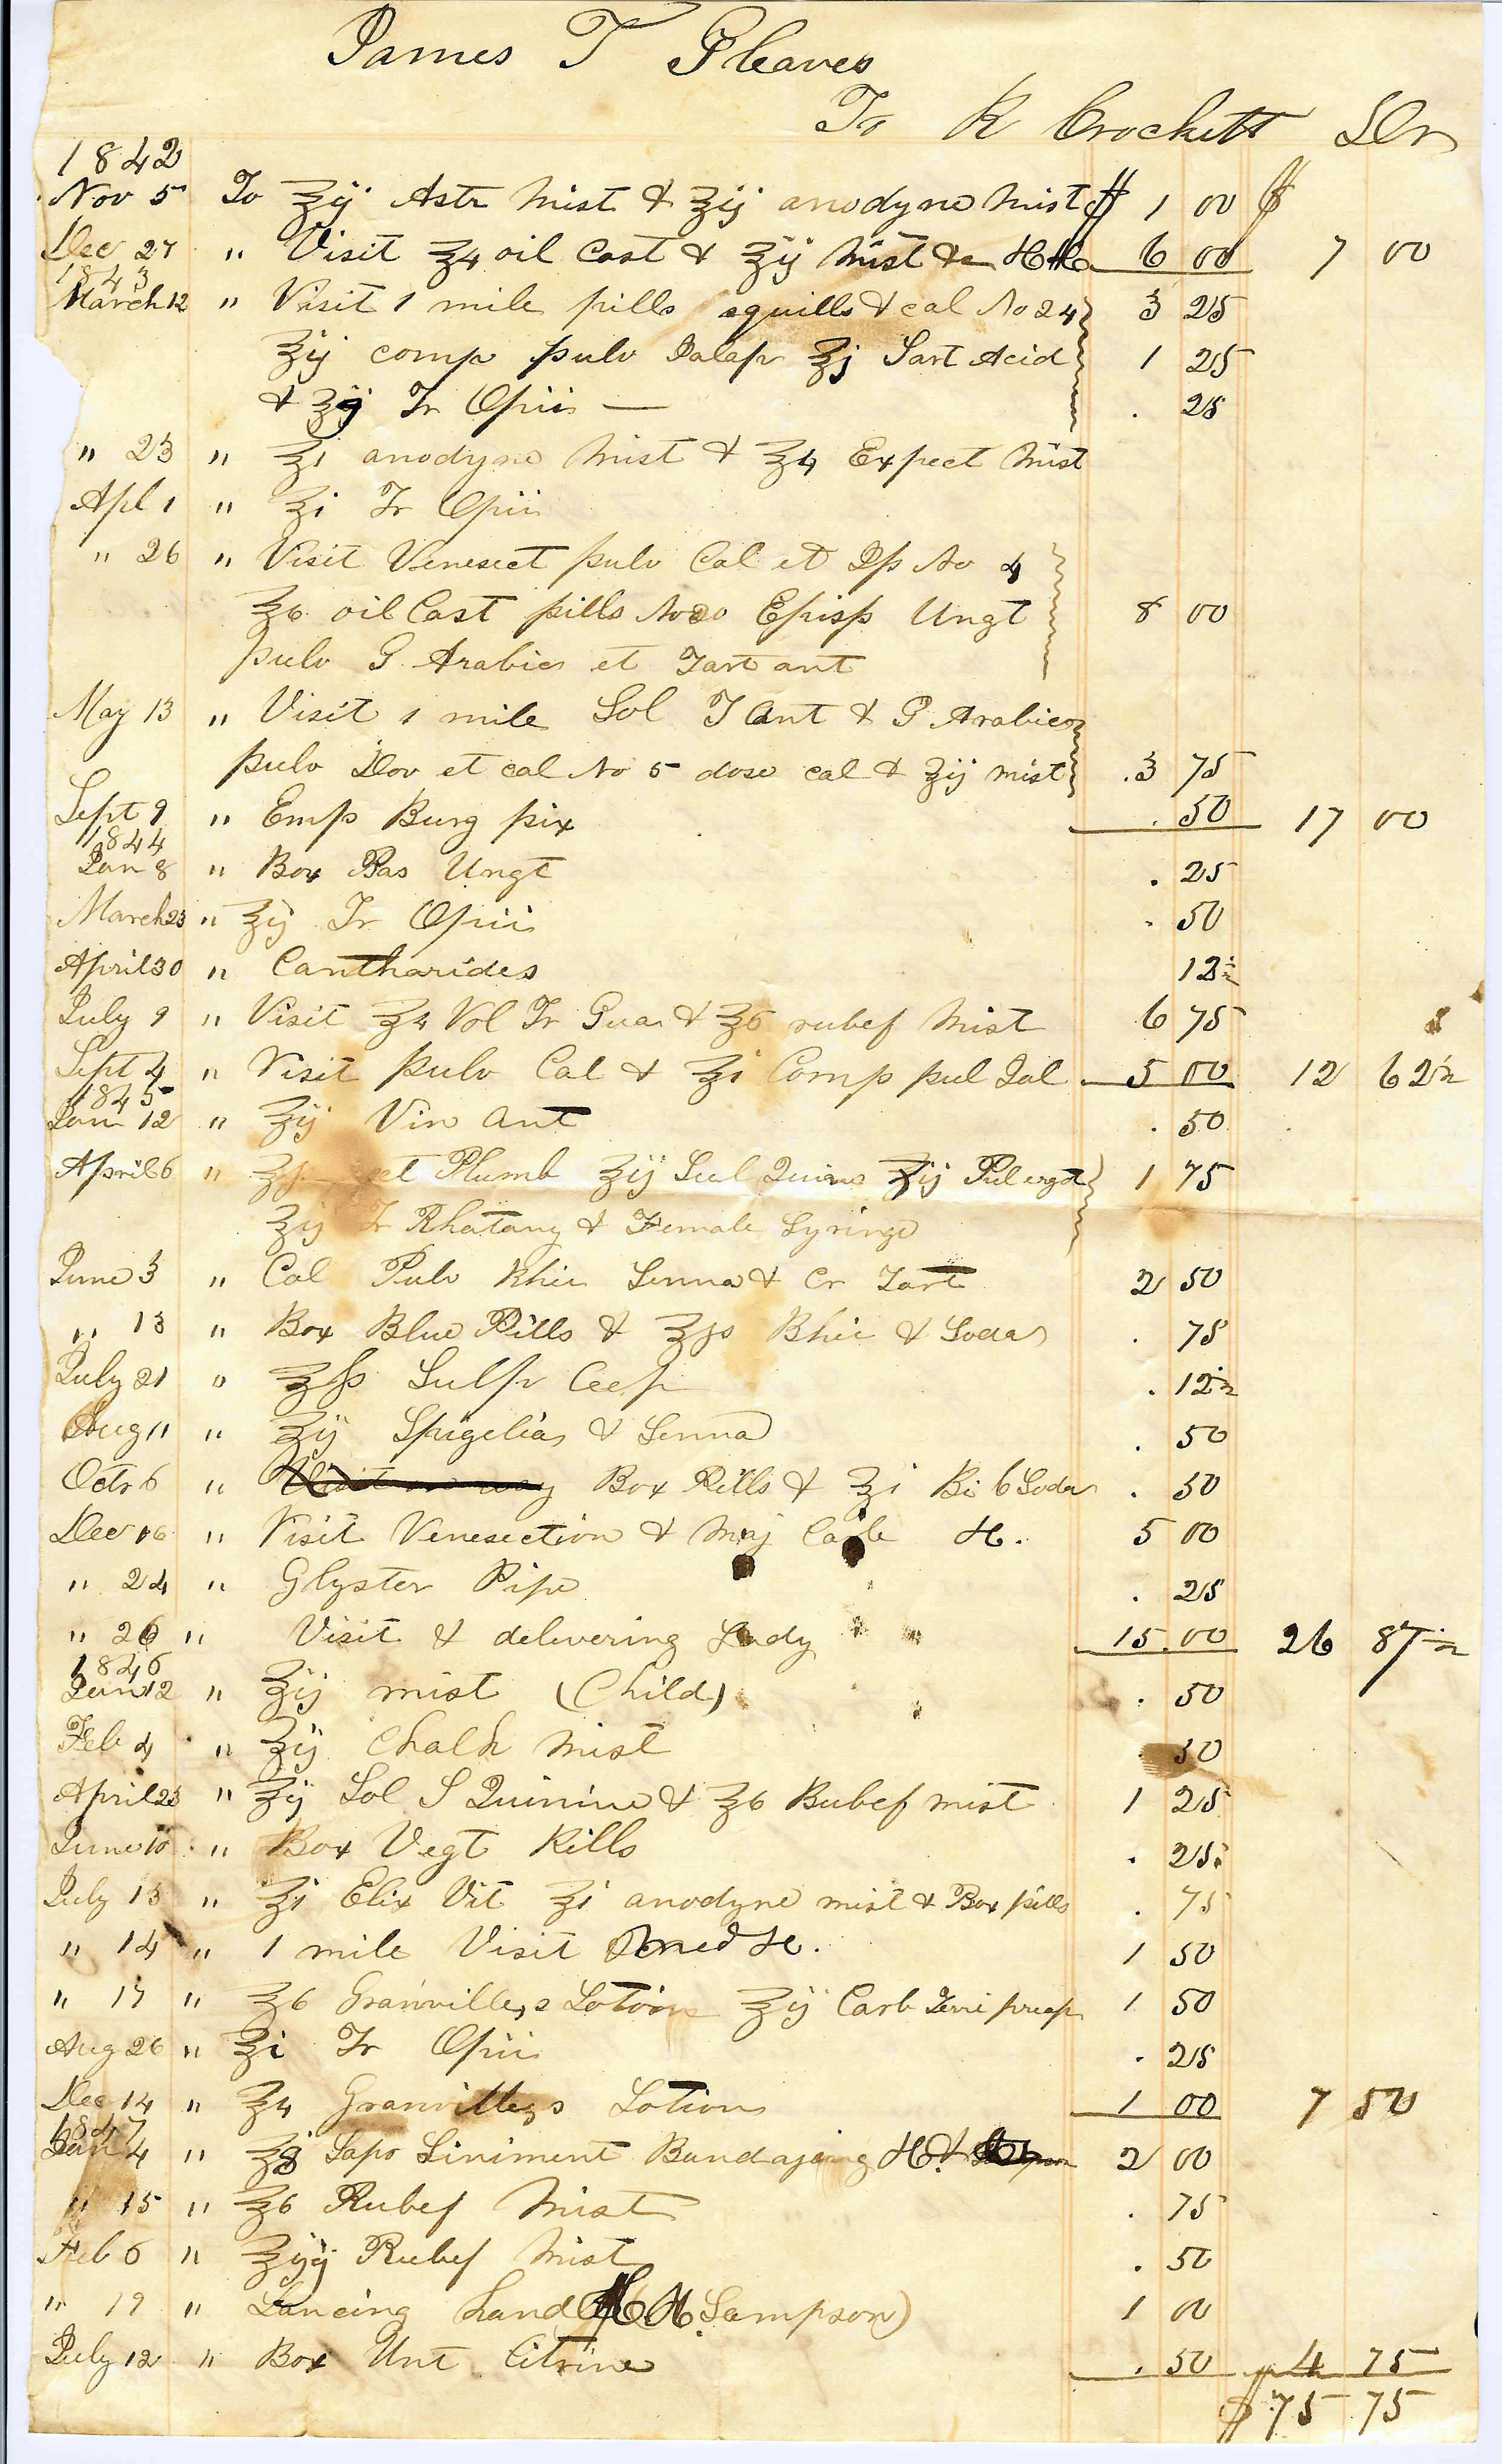 James T Cleaves
To R Crockett Dr
1842
Nov 5 To ʒij Astr Mist & ʒij anodyne Mist $ 1 00 $
Dec 27 " Visit ʒ4 oil Cast & ʒij Mist 6 00 7 00
1843
March 12 " Visit 1 mile pills squills & cal No 24 3 25
ʒij comp pulv Jalap ʒj Tart Acid 1 25
& ʒij Tr Opii — . 25
" 23 " ʒ1 anodyne Mist & ʒ4 Expect Mist
Apl 1 " ʒi Tr Opii
" 26 " Visit Venesect pulv Cal et Ip No 4
ʒ6 oil Cast pills No 20 Episp Ungt 8 00
pulv G. Arabic et Tart ant
May 13 " Visit 1 mile Sol T Ant & G Arabic
pulv Dov et cal No 5 dose cal & ʒij mist . 3 75
Sept 9 " Emp Burg pix . 50 17 00
1844
Jan 8 " Box Bas Ungt . 25
March 23 " ʒij Tr Opii . 50
April 30 " Cantharides 12½
July 9 " Visit ʒ4 Vol Tr Guai & ʒ6 rubef Mist 6 75
Sept 4 " Visit pulv Cal & ʒi Comp pul Jal 5 00 12 62½
1845
Jan 12 " ʒij Vin Ant . 50
April 6 " et Plumb ʒij Sul Quins ʒij Pul ergt 1 75
ʒij Tr Rhatany & Female Syringe
June 3 " Cal Pulv Rhii Senna & Cr Tart 2 50
" 13 " Box Blue Pills & ʒss Rhii & Soda . 75
July 21 " ʒss Sulp Ceep . 12½
Aug 11 " ʒij Spigelia & Senna . 50
Octr 6 " Visit on way Box Pills & ʒi Bi C Soda . 50
Dec 16 " Visit Venesection & H. 5 00
" 24 " Glyster Pipe . 25
" 26 " Visit & delivering Lady 15.00 26 87½
1846
Jan 12 " ʒij mist (Child) . 50
Feb 4 " ʒij Chalk Mist . 50
April 23 " ʒij Sol S Quinine & ʒ6 Rubef mist 1 25
June 10 " Box Vegt Pills . 25
July 13 " ʒi Elix Vit ʒi anodyne mist & Box pills . 75
" 14 " 1 mile Visit & med H. 1 50
" 17 " ʒ6 Granville,s Lotion ʒij Carb Ferri precp 1 50
Aug 26 " ʒi Tr Opii . 25
Dec 14 " ʒ4 Granville,s Lotion 1 00 7 50
1847
Jan 4 " ʒ8 Sapo Liniment Bandajeing H. 2 00
" 15 " ʒ6 Rubef Mist . 75
Feb 6 " ʒijj Rubef Mist . 50
" 19 " Lancing hand (H. Sampson) 1 00
July 12 " Box Unt Citrine . 50 4 75
$ 75 75